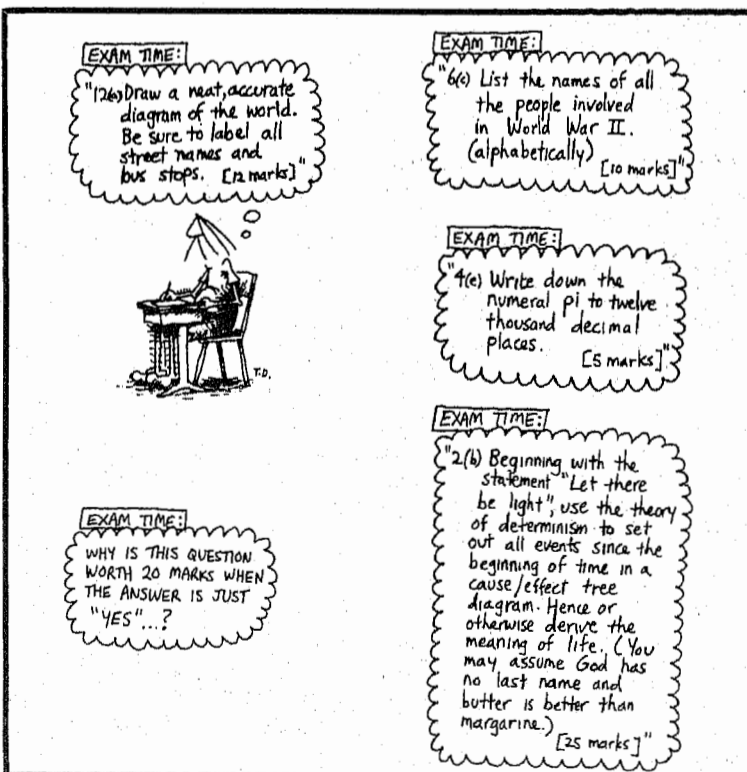 EXAM TIME:
"12(a) Draw a neat, accurate
diagram of the world.
Be sure to label all
street names and
bus stops. [12 marks]"
T.D.
EXAM TIME:
WHY IS THIS QUESTION
WORTH 20 MARKS WHEN
THE ANSWER IS JUST
"YES"...?
EXAM TIME:
"6(c) List the names of all
the people involved
in World War II.
(alphabetically)
[10 marks]"
EXAM TIME:
"4(e) Write down the
numeral pi to twelve
thousand decimal
places.
[5 marks]"
EXAM TIME:
"2(b) Beginning with the
statement "Let there
be light", use the theory
of determinism to set
out all events since the
beginning of time in a
cause/effect tree
diagram. Hence or
otherwise derive the
meaning of life. (You
may assume God has
no last name and
butter is better than
margarine.)
[25 marks]"